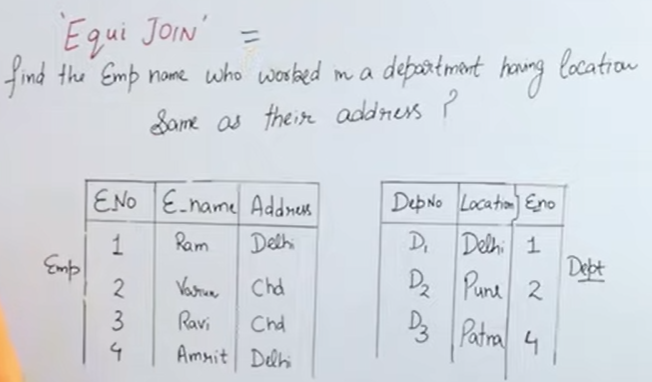 'Equi JOIN' =
find the Emp name who worked in a department having location
Same as their address ?
E.No E_name Address
1 Ram Delhi
2 Varun Chd
3 Ravi Chd
4 Amrit Delhi
Emp
DepNo Location Eno
D1 Delhi 1
D2 Pune 2
D3 Patna 4
Dept